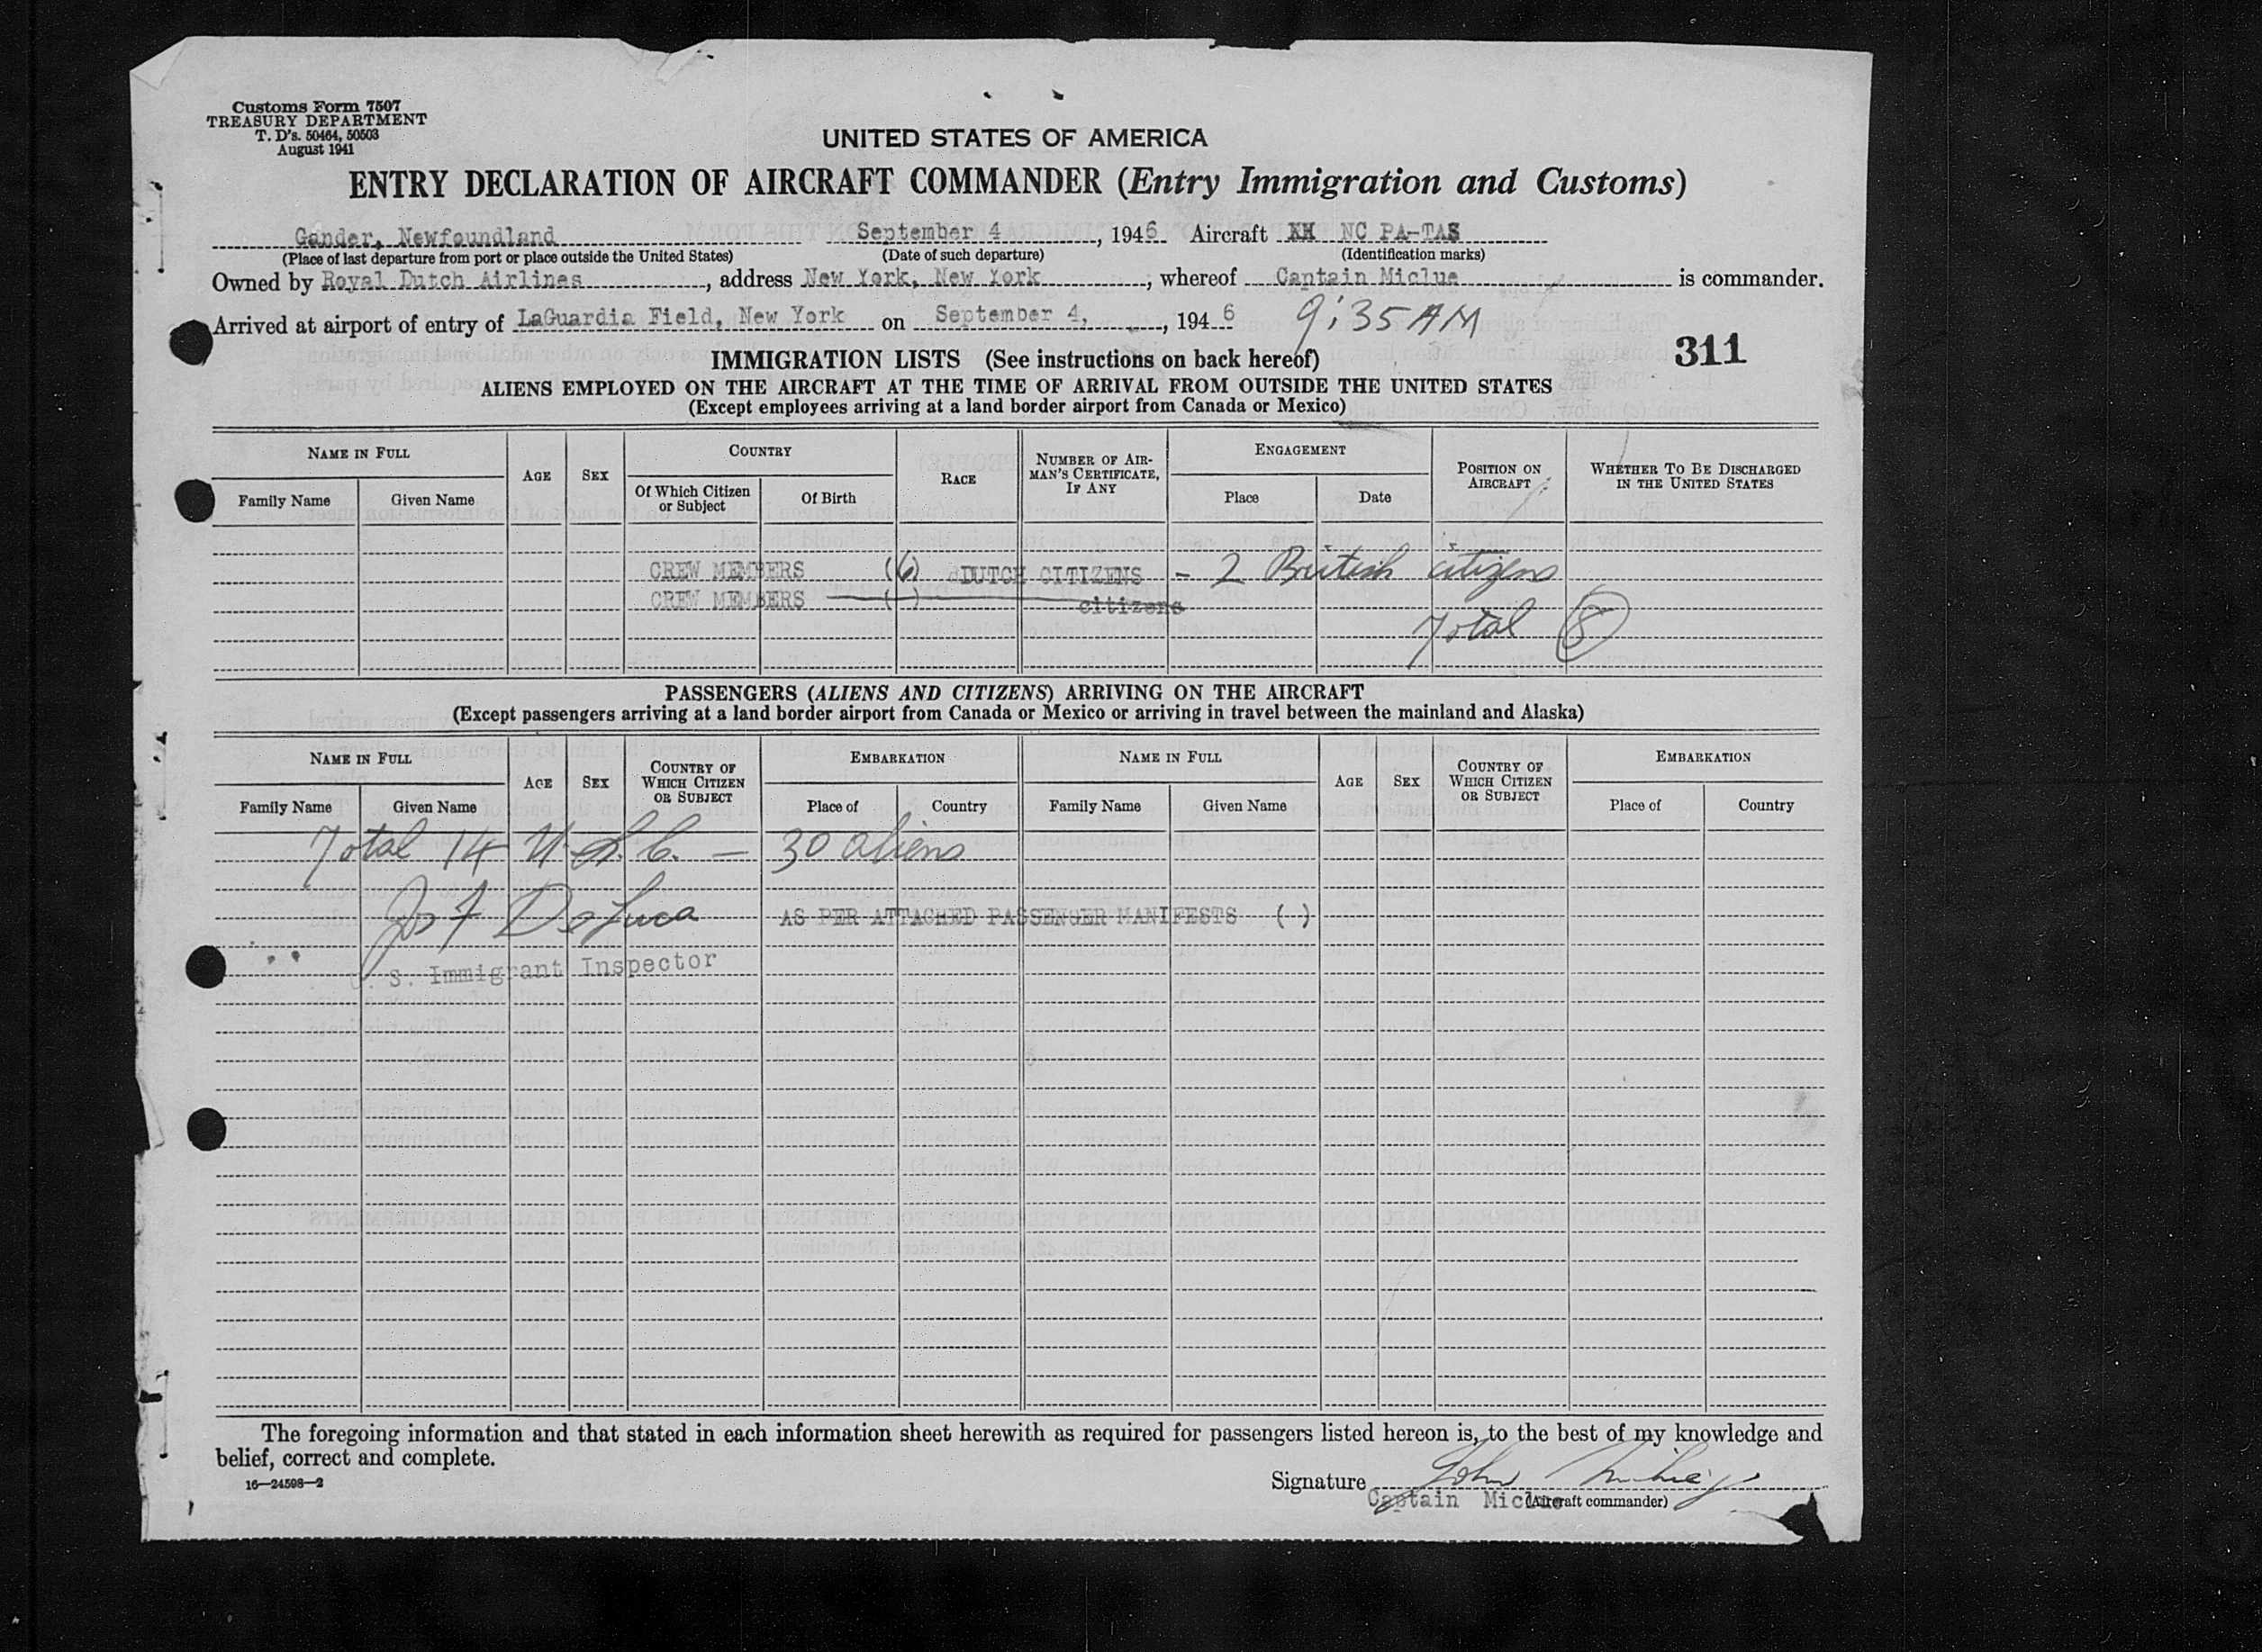 Customs Form 7507
TREASURY DEPARTMENT
T. D's. 50464, 50503
August 1941
UNITED STATES OF AMERICA
ENTRY DECLARATION OF AIRCRAFT COMMANDER (Entry Immigration and Customs)
Gander, Newfoundland September 4, 1946 Aircraft NC PA-TAS
(Place of last departure from port or place outside the United States) (Date of such departure) (Identification marks)
Owned by Royal Dutch Airlines, address New York, New York; whereof Captain Miclue is commander.
Arrived at airport of entry of LaGuardia Field, New York on September 4, 1946 9:35 AM
311
IMMIGRATION LISTS (See instructions on back hereof)
ALIENS EMPLOYED ON THE AIRCRAFT AT THE TIME OF ARRIVAL FROM OUTSIDE THE UNITED STATES
(Except employees arriving at a land border airport from Canada or Mexico)
NAME IN FULL AGE SEX COUNTRY RACE NUMBER OF AIRMAN'S CERTIFICATE, IF ANY ENGAGEMENT POSITION ON AIRCRAFT WHETHER TO BE DISCHARGED IN THE UNITED STATES
Family Name Given Name Of Which Citizen or Subject Of Birth Place Date
CREW MEMBERS (6) DUTCH CITIZENS - 2 British citizens
CREW MEMBERS ( ) citizens
Total 8
PASSENGERS (ALIENS AND CITIZENS) ARRIVING ON THE AIRCRAFT
(Except passengers arriving at a land border airport from Canada or Mexico or arriving in travel between the mainland and Alaska)
NAME IN FULL AGE SEX COUNTRY OF WHICH CITIZEN OR SUBJECT EMBARKATION NAME IN FULL AGE SEX COUNTRY OF WHICH CITIZEN OR SUBJECT EMBARKATION
Family Name Given Name Place of Country Family Name Given Name Place of Country
Total 14 U.S.C. — 30 aliens
Jos F DeLuca AS PER ATTACHED PASSENGER MANIFESTS ( )
U. S. Immigrant Inspector
The foregoing information and that stated in each information sheet herewith as required for passengers listed hereon is, to the best of my knowledge and
belief, correct and complete.
16—24598—2
Signature John
Captain Miclue (Aircraft commander)